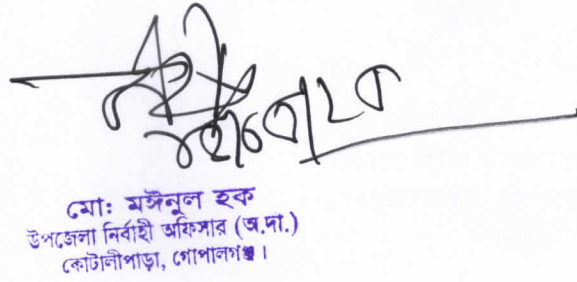 মো: মঈনুল হক
উপজেলা নির্বাহী অফিসার (অ.দা.)
কোটালীপাড়া, গোপালগঞ্জ।